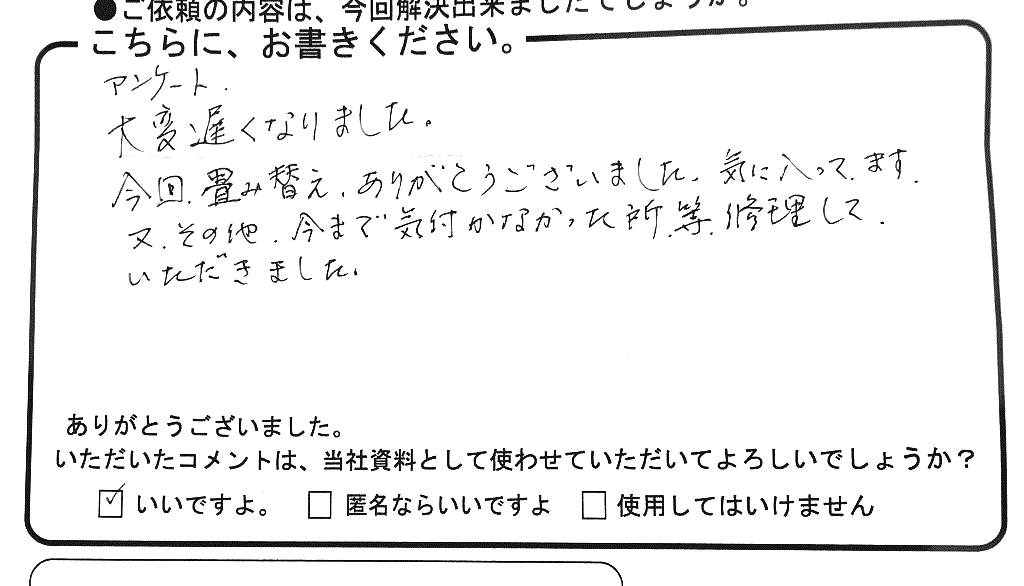 ●ご依頼の内容は、今回解決出来ましたでしょうか。
こちらに、お書きください。
アンケート.
大変遅くなりました。
今回、畳み替え、ありがとうございました。気に入って、ます.
又、その他、今まで気付かなかった所、等、修理して.
いただきました。
ありがとうございました。
いただいたコメントは、当社資料として使わせていただいてよろしいでしょうか？
☑ いいですよ。 □ 匿名ならいいですよ □ 使用してはいけません